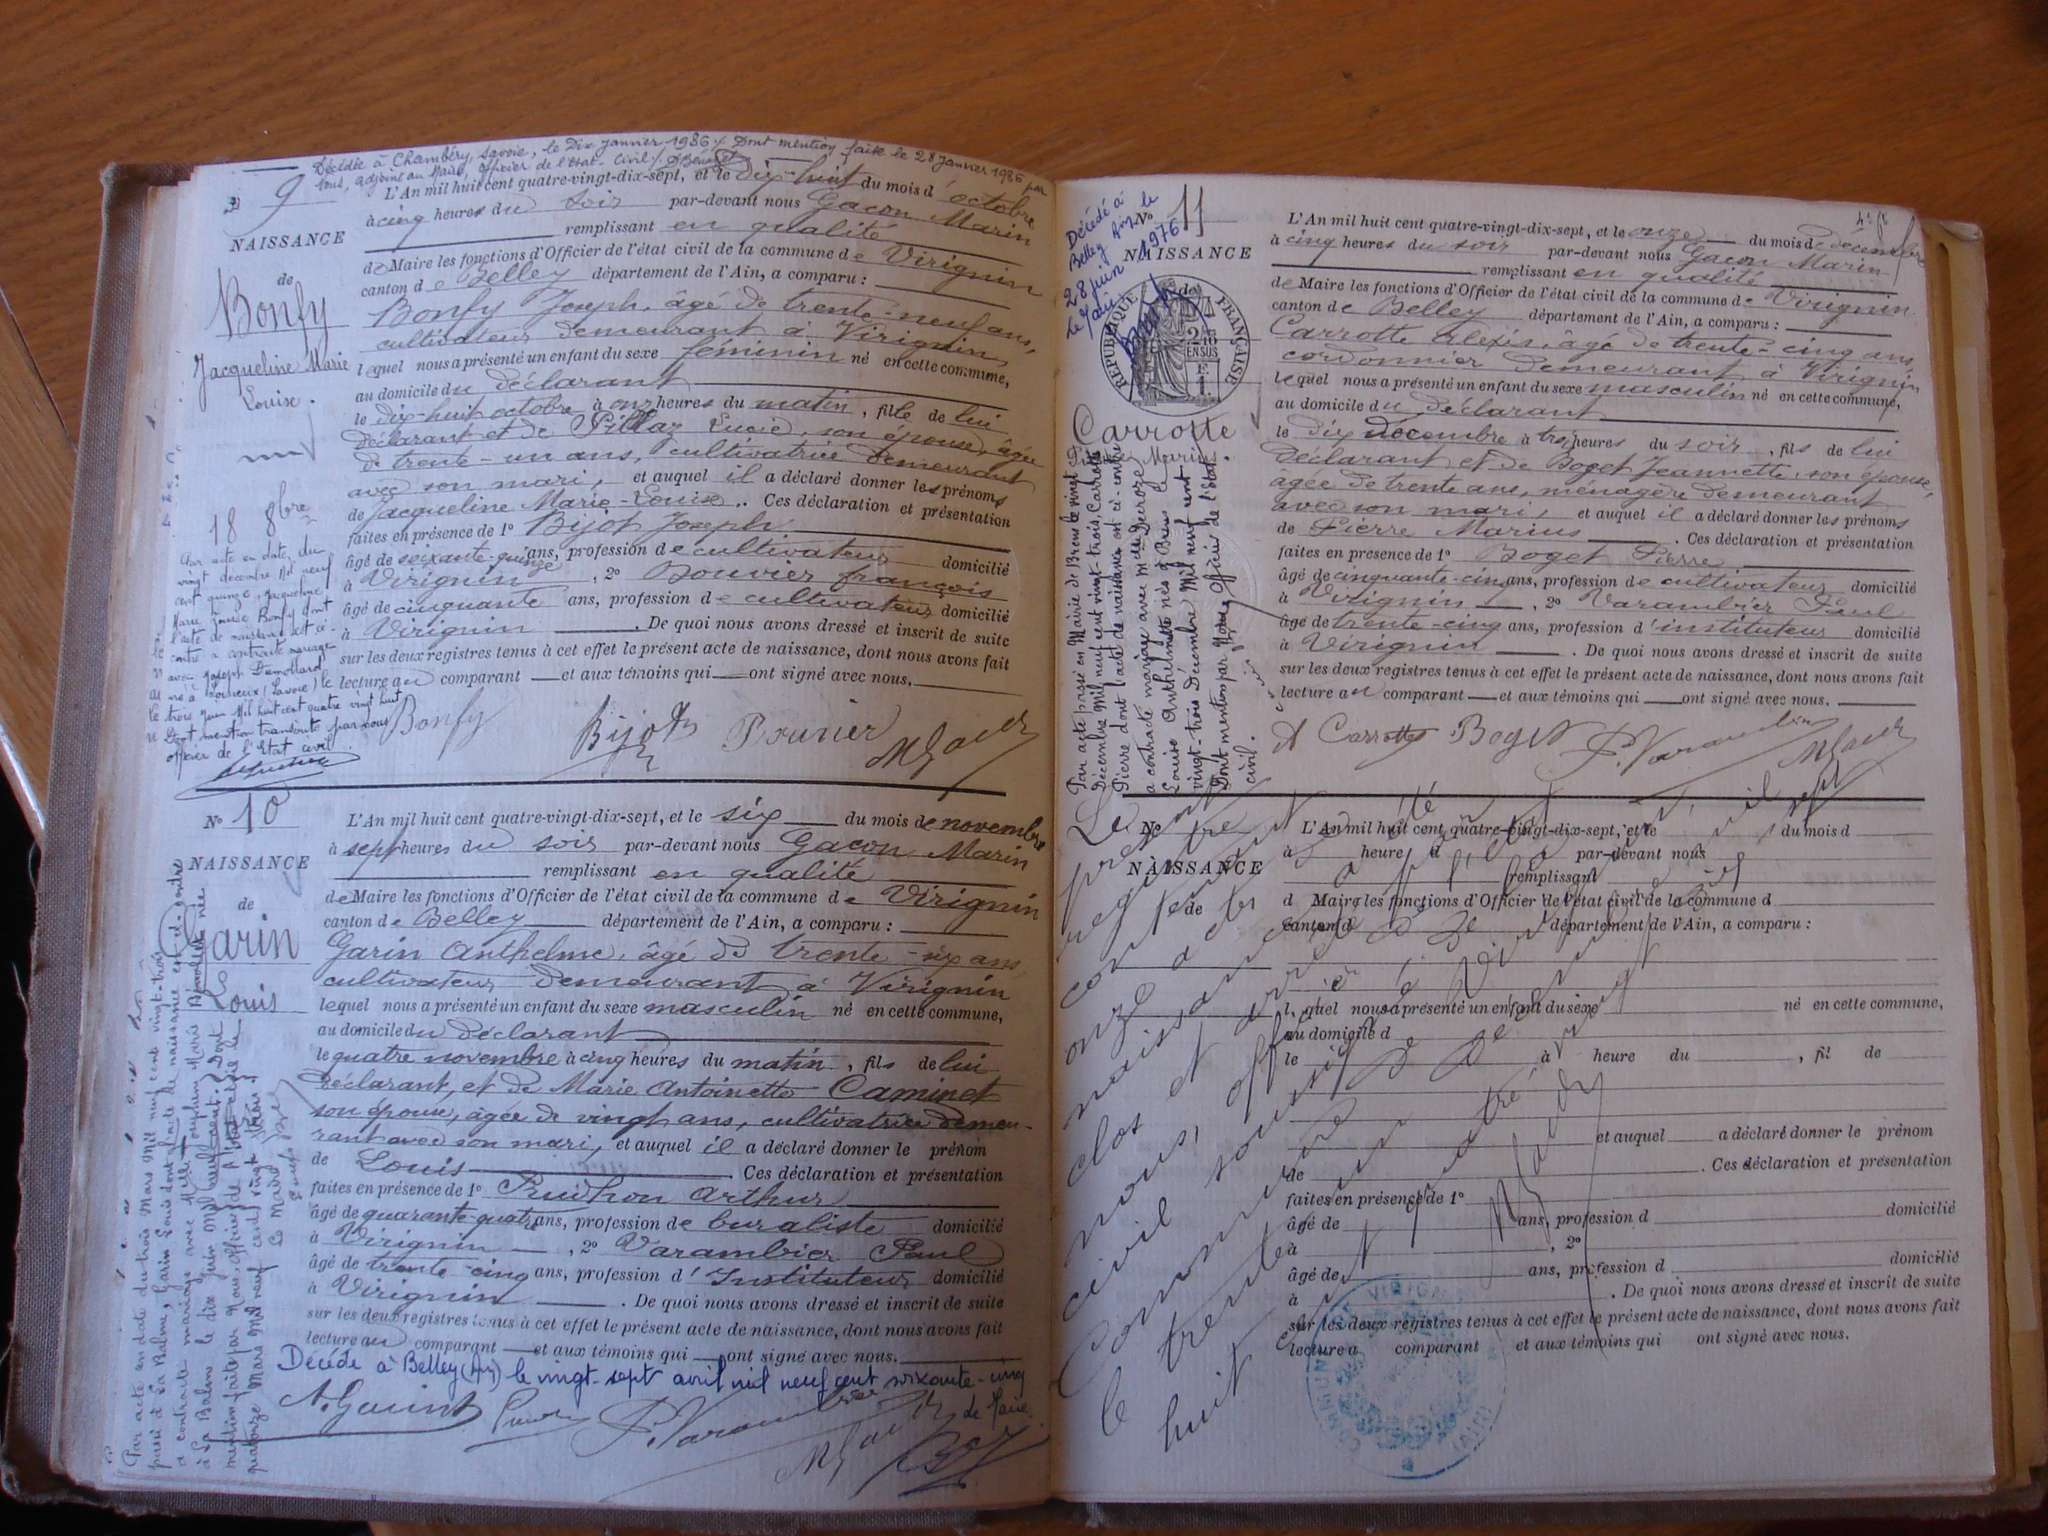 Décédée à Chambéry, Savoie, le Dix janvier 1986 / Dont mention faite le 28 janvier 1986 par
nous, adjoint au Maire, officier de l'Etat-Civil /.
9
NAISSANCE
de
Bonfy
Jacqueline Marie
Louise.
18 8bre
Par acte en date du
vingt décembre Mil neuf
cent quinze, Jacqueline
Marie Louise Bonfy dont
l'acte de naissance est ci-
contre a contracté mariage
avec Joseph
né à (Savoie) le
trois juin Mil huit cent quatre vingt huit
Dont mention transcrite par nous
officier de l'Etat civil
L'An mil huit cent quatre-vingt-dix-sept, et le dix-huit du mois d'octobre
à cinq heures du soir par-devant nous Gacon Marin
remplissant en qualité
de Maire les fonctions d'Officier de l'état civil de la commune de Virignin
canton de Belley département de l'Ain, a comparu :
Bonfy Joseph, âgé de trente-neuf ans,
cultivateur demeurant à Virignin
lequel nous a présenté un enfant du sexe féminin né en cette commune,
au domicile du déclarant
le dix-huit octobre à onze heures du matin, fille de lui
déclarant et de Pillaz Lucie, son épouse, âgée
de trente-un ans, cultivatrice demeurant
avec son mari, et auquel il a déclaré donner les prénoms
de Jacqueline Marie-Louise. Ces déclaration et présentation
faites en présence de 1° Bijot Joseph
âgé de soixante-quinze ans, profession de cultivateur domicilié
à Virignin, 2° Bouvier françois
âgé de cinquante ans, profession de cultivateur domicilié
à Virignin. De quoi nous avons dressé et inscrit de suite
sur les deux registres tenus à cet effet le présent acte de naissance, dont nous avons fait
lecture au comparant et aux témoins qui ont signé avec nous.
Bonfy Bijot Bouvier MGacon
N° 10
NAISSANCE
de
Garin
Louis
Par acte en date du trois Mars Mil neuf cent vingt-trois
passé à La Balme, Garin Louis dont l'acte de naissance est ci-contre
a contracté mariage avec Melle
à La Balme le dix juin Mil neuf cent. Dont
mention faite par Nous, Officier de l'Etat civil le
quatorze Mars Mil neuf cent vingt trois.
Le Maire
L'An mil huit cent quatre-vingt-dix-sept, et le six du mois de novembre
à sept heures du soir par-devant nous Gacon Marin
remplissant en qualité
de Maire les fonctions d'Officier de l'état civil de la commune de Virignin
canton de Belley département de l'Ain, a comparu :
Garin Anthelme, âgé de trente-six ans
cultivateur demeurant à Virignin
lequel nous a présenté un enfant du sexe masculin né en cette commune,
au domicile du déclarant
le quatre novembre à cinq heures du matin, fils de lui
déclarant, et de Marie Antoinette Caminet
son épouse, âgée de vingt ans, cultivatrice demeu-
rant avec son mari, et auquel il a déclaré donner le prénom
de Louis. Ces déclaration et présentation
faites en présence de 1° Prudhon Arthur
âgé de quarante-quatre ans, profession de buraliste domicilié
à Virignin, 2° Varambier Paul
âgé de trente-cinq ans, profession d'Instituteur domicilié
à Virignin. De quoi nous avons dressé et inscrit de suite
sur les deux registres tenus à cet effet le présent acte de naissance, dont nous avons fait
lecture au comparant et aux témoins qui ont signé avec nous.
Décédé à Belley (Ain) le vingt-sept avril mil neuf cent soixante-cinq
P. Varambier MGacon
Décédé à
Belley Ain le
28 juin 1976
N° 11
NAISSANCE
RÉPUBLIQUE FRANÇAISE
Carrotte
Par acte passé en Mairie de Brens le vingt
Décembre Mil neuf cent vingt-trois, Carrotte
Pierre dont l'acte de naissance est ci-contre
a contracté mariage avec Melle
Louise Anthelmette née à Brens le
vingt-trois Décembre Mil neuf cent
Dont mention par Nous, Officier de l'état
civil.
L'An mil huit cent quatre-vingt-dix-sept, et le onze du mois de décembre
à cinq heures du soir par-devant nous Gacon Marin
remplissant en qualité
de Maire les fonctions d'Officier de l'état civil de la commune de Virignin
canton de Belley département de l'Ain, a comparu :
Carrotte Alexis, âgé de trente-cinq ans,
cordonnier demeurant à Virignin
lequel nous a présenté un enfant du sexe masculin né en cette commune,
au domicile du déclarant
le dix décembre à trois heures du soir, fils de lui
déclarant et de Boget Jeannette, son épouse,
âgée de trente ans, ménagère demeurant
avec son mari, et auquel il a déclaré donner les prénoms
de Pierre Marius. Ces déclaration et présentation
faites en présence de 1° Boget Pierre
âgé de cinquante-cinq ans, profession de cultivateur domicilié
à Virignin, 2° Varambier Paul
âgé de trente-cinq ans, profession d'instituteur domicilié
à Virignin. De quoi nous avons dressé et inscrit de suite
sur les deux registres tenus à cet effet le présent acte de naissance, dont nous avons fait
lecture au comparant et aux témoins qui ont signé avec nous.
A Carrotte Boget P. Varambier MGacon
N°
NAISSANCE
de
L'An mil huit cent quatre-vingt-dix-sept, et le du mois d
à heure d par-devant nous
remplissant
d Maire les fonctions d'Officier de l'état civil de la commune d
canton d département de l'Ain, a comparu :
lequel nous a présenté un enfant du sexe né en cette commune,
au domicile d
le à heure du , fil de
et auquel a déclaré donner le prénom
de . Ces déclaration et présentation
faites en présence de 1°
âgé de ans, profession d domicilié
à , 2°
âgé de ans, profession d domicilié
à . De quoi nous avons dressé et inscrit de suite
sur les deux registres tenus à cet effet le présent acte de naissance, dont nous avons fait
lecture a comparant et aux témoins qui ont signé avec nous.
Le présent
registre
contenant
onze actes de
naissance a été
clos et arrêté par
nous, officier de l'état
civil soussigné de la
Commune de Virignin,
le trente un décembre mil
huit cent quatre vingt dix sept
MGacon
COMMUNE DE VIRIGNIN (AIN)